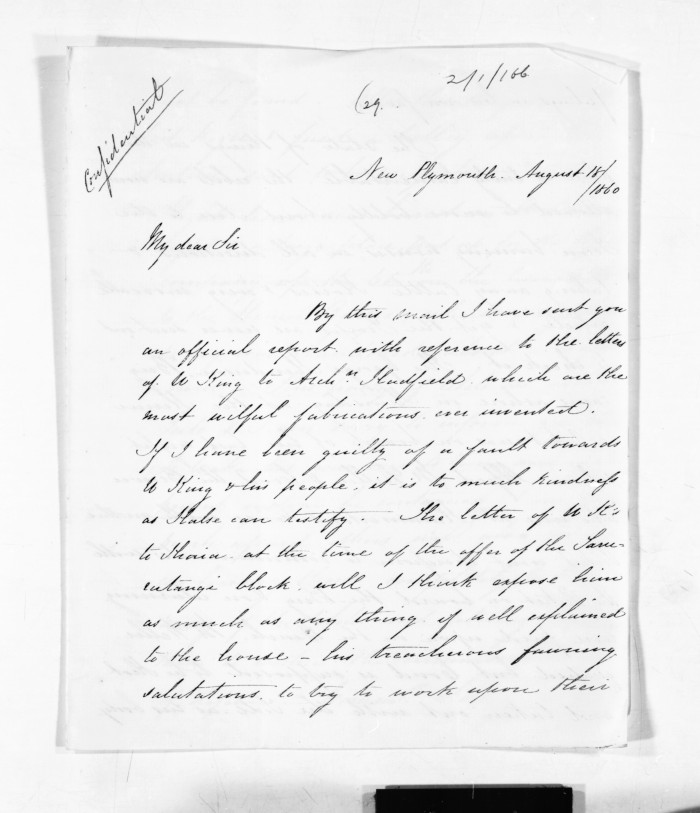 2/1/166
(29.
Confidential
New Plymouth. August 18/
/1860
My dear Sir
By this mail I have sent you
an official report with reference to the letters
of W King to Archn Hadfield which are the
most wilful fabrications ever invented.
If I have been guilty of a fault towards
W King & his people, it is to much kindness
as Halse can testify. The letter of W K's
to Ihaia at the time of the offer of the
block will I think expose him
as much as any thing if well explained
to the house – his treacherous fawning
salutations to try to work upon their